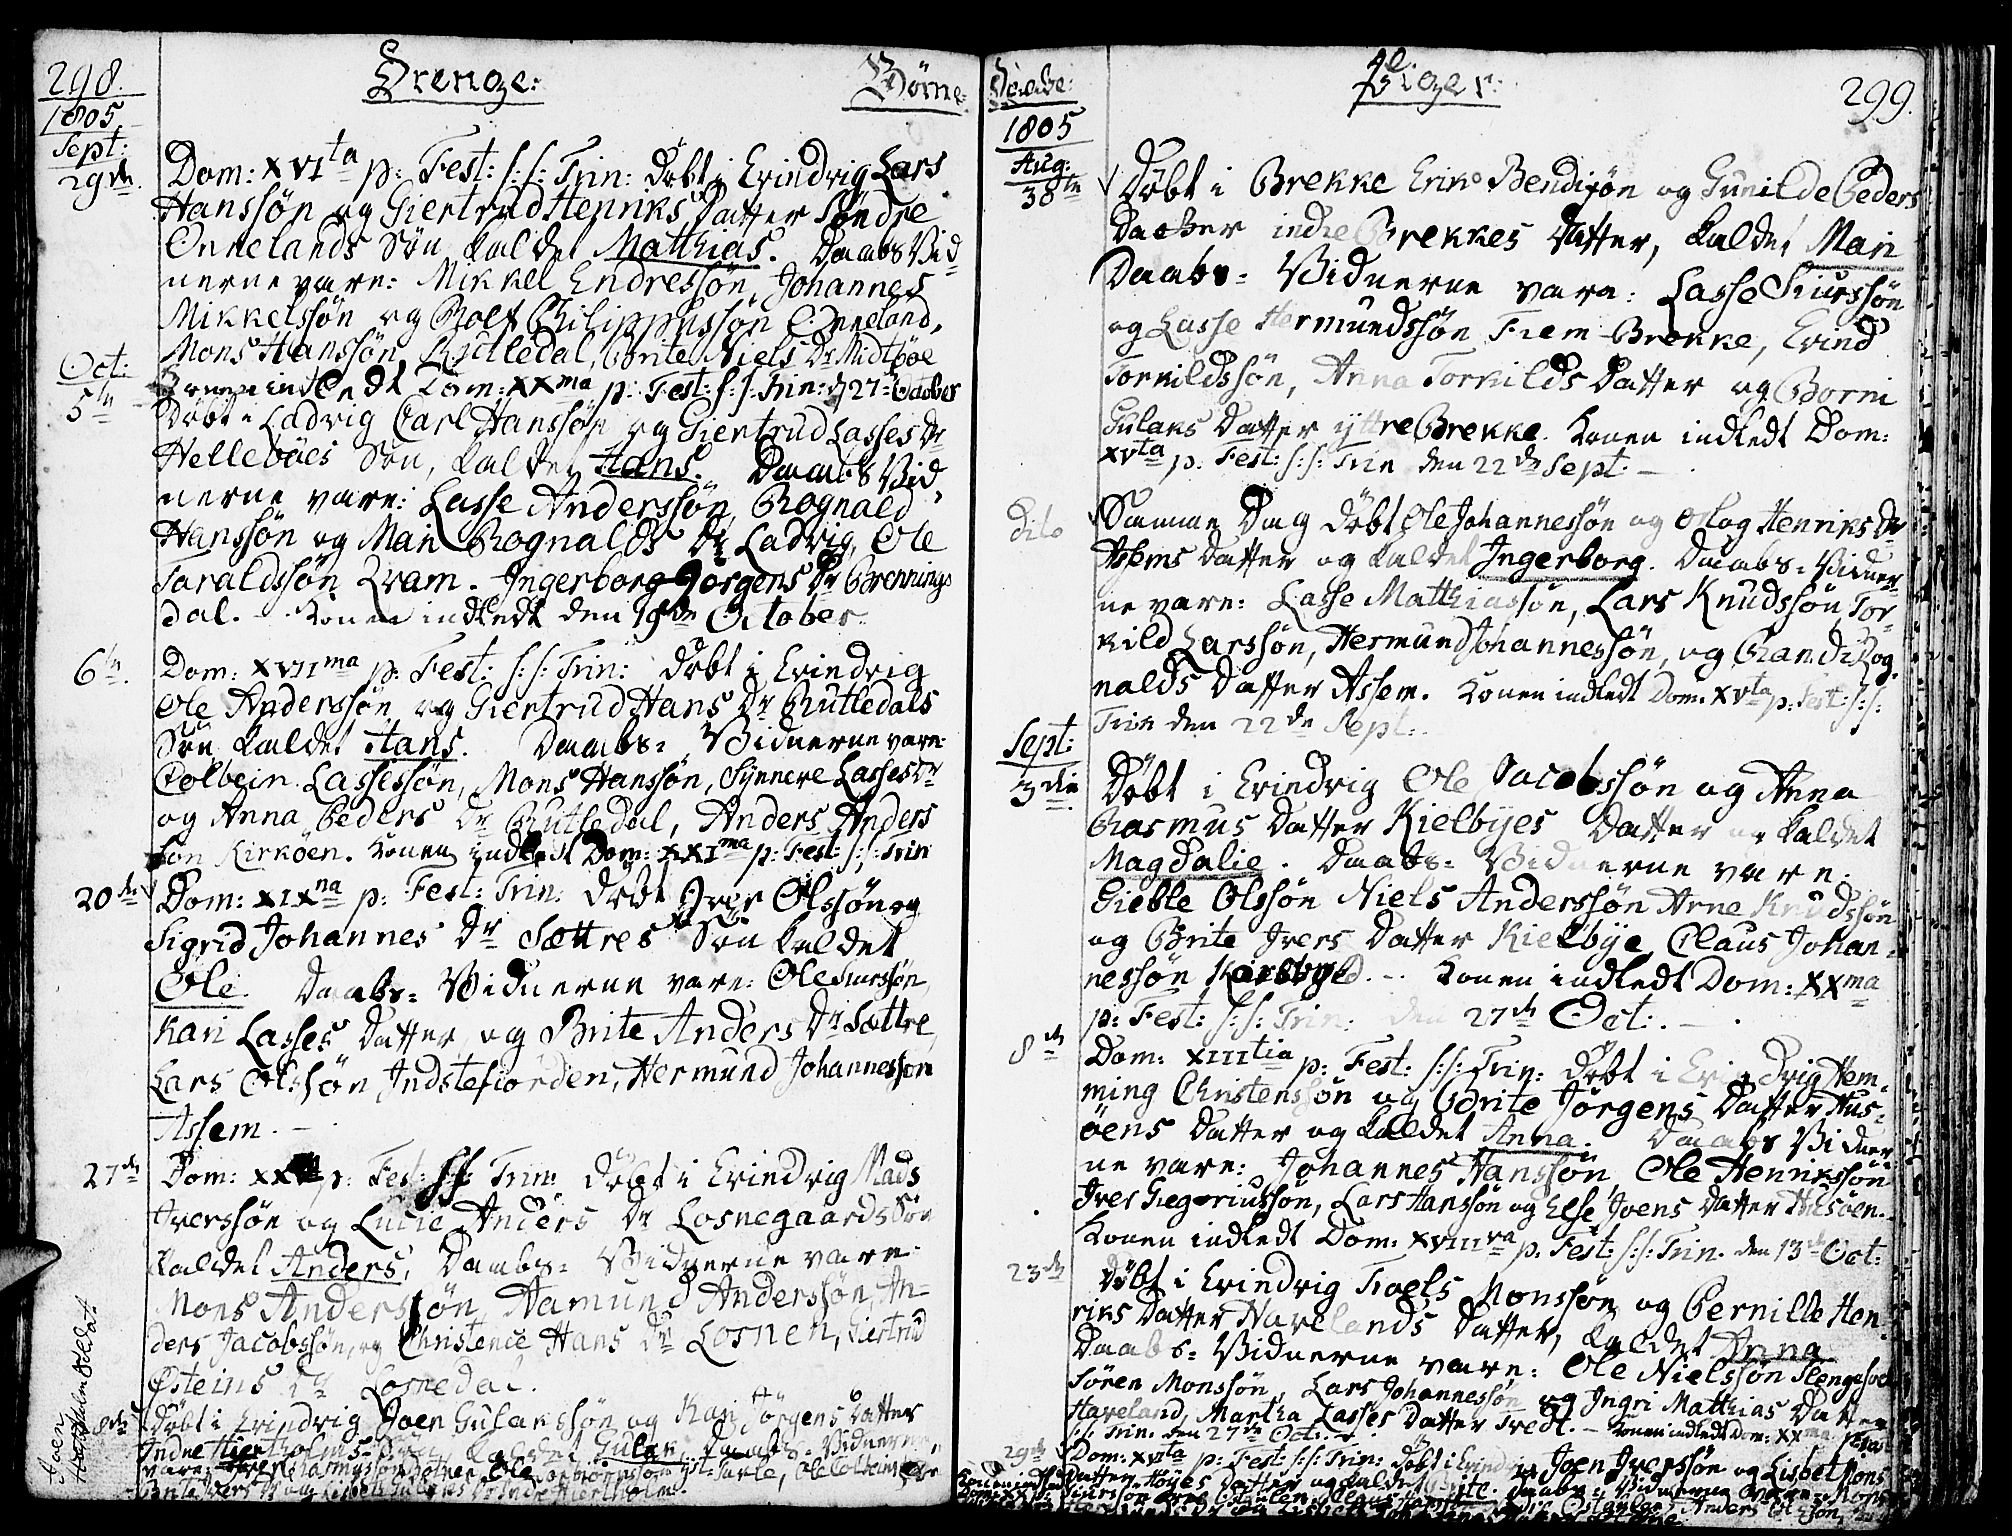 298.
Drenge:
Børne
1805
Sept:
29de
Dom: XVIta p: Fest: S:S: Trin: Døbt i Evindvig Lars
Hanssøn og Giertrud Henriks Datter Søndre
Onnelands Søn kaldet Matthias. Daabs Vid
nerne vare: Mikkel Endressøn, Johannes
Mikkelssøn og Rolf Philippussøn Onneland,
Mons Hanssøn Rutledal, Brite Niels Dr Midtbøe
Konen indledt Dom: XXma p: Fest: S:S: Trin: d 27de October
Oct:
5te
Døbt i Ladvig Carl Hanssøn og Giertrud Lasses Dr
Hellebøes Søn, kaldet Hans. Daabs Vid
nerne vare: Lasse Anderssøn, Rognald
Hanssøn og Mari Rognalds Dr Ladvig, Ole
Taraldssøn Qvam. Ingerborg Jørgens Dr Brennings
dal. - Konen indledt den 19de October
6te
Dom: XVIIma p: Fest: S:S: Trin: døbt i Evindvig
Ole Anderssøn og Giertrud Hans Dr Rutledals
Søn kaldet Hans. Daabs- Vidnerne vare:
Colbein Lassessøn, Mons Hanssøn, Synneve Lasses Dr
og Anna Peders Dr Rutledal, Anders Anders
søn Kirkøen. Konen indledt Dom: XXIma p: Fest: S:S: Trin
20de
Dom: XIXna p: Fest: Trin: døbt Iver Olssøn og
Sigrid Johannes Dr Sættres Søn kaldet
Ole. Daabs- Vidnerne vare: Ole Siurssøn,
Kari Lasses Datter, og Brite Anders Dr Sættre,
Lars Olssøn Indstefiorden, Hermund Johannessøn
Assem. -
27de
Dom: XX p: Fest: S:S: Trin: døbt i Evindvig Mads
Iverssøn og Lucie Anders Dr Losnegaards Søn
kaldet Anders, Daabs- Vidnerne vare:
Mons Anderssøn, Aamund Anderssøn, An-
ders Jacobssøn, og Christence Hans Dr Losnen, Giertrud
Østeins Dr Losnedal.
Døbt i Evindvig Joen Gulakssøn og Kari Jørgens Datter
Indre Hiertholms Søn, kaldet Gulak. Daabs- Vidnerne
Joen
Soldat
Døbte:
Piger:
299.
1805
Aug:
38te
Døbt i Brekke Erik Bendixøn og Gunilde Peders
Datter indre Brekkes Datter, kaldet Mari
Daabs- Vidnerne vare: Lasse Siurssøn
og Lasse Hermundssøn Frem-Brekke, Evind
Torkildssøn, Anna Torkilds Datter og Borni
Gulaks Datter yttre Brekke. Konen indledt Dom:
XVta p: Fest: S:S: Trin den 22de Sept: -
Dito
Samme Dag døbt Ole Johannessøn og Oslog Henriks Dr
Assems Datter og kaldet Ingerborg. Daabs- Vidner
ne vare: Lasse Matthiassøn, Lars Knudssøn, Tor-
kild Larssøn, Hermund Johannessøn, og Randi Rog
nalds Datter Assem. Konen indledt Dom: XVta p: Fest: S:S:
Trin den 22de Sept:
Sept:
3die
Døbt i Evindvig Ole Jacobssøn og Anna
Rasmus Datter Kielbyes Datter og kaldet
Magdalie. Daabs- Vidnerne vare:
Gieble Olssøn Niels Anderssøn Arne Knudssøn
og Brite Ivers Datter Kielbye Claus Johan-
nessøn. - Konen indledt Dom: XXma
p: Fest: S:S: Trin: den 27de Oct: -
8de
Dom: XIIItia p: Fest: S:S: Trin: døbt i Evindvig Hem-
ming Christenssøn og Brite Jørgens Datter Hus-
øens Datter og kaldet Anna. Daabs Vidner
ne vare: Johannes Hanssøn, Ole Henrikssøn
Iver Gregoriussøn, Lars Hanssøn og Else Joens Datter Husøen.
Konen indledt Dom: XVIIIva p: Fest: S:S: Trin. den 13de Oct:
23de
Døbt i Evindvig Troels Monssøn og Pernille Hen
riks Datter Havelands Datter, kaldet Anna
Daabs- Vidnerne vare: Ole Nielssøn
Søren Monssøn, Lars Johannessøn og Ingri Matthias Datter
Haveland, Martha Lasses Datter Tredt. - Konen indledt Dom: XXma
S:S: Trin. den 27de Oct:
29de
Dom: XVta p: Fest: S:S: Trin: døbt i Evindvig Joen Iverssøn og Lisbet Mons
Datter Høyes Datter og kaldet Brite. Daabs- Vidnerne vare: Mons